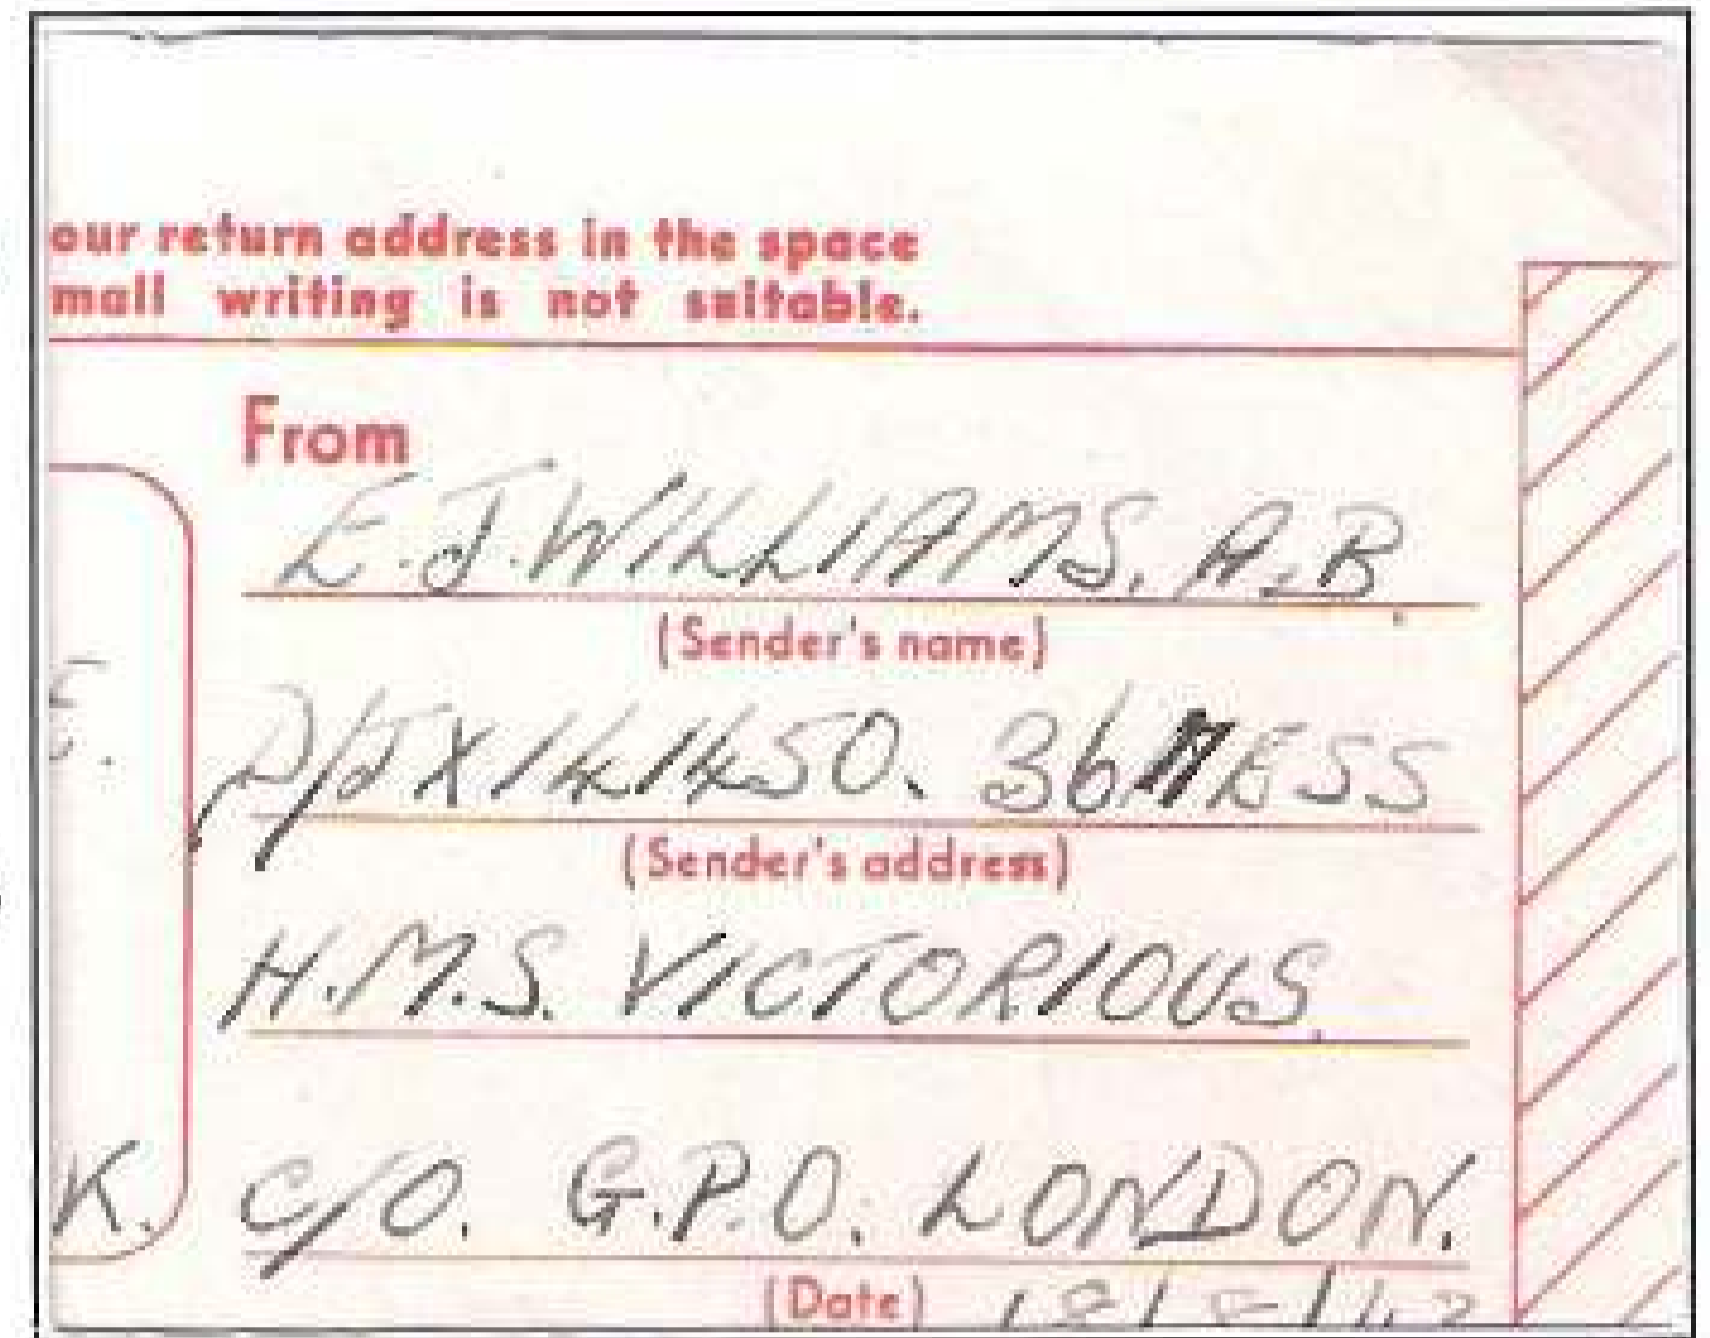 our return address in the space
mall writing is not suitable.
From
E.J.WILLIAMS. A.B.
(Sender's name)
D/JX141450. 36 MESS
(Sender's address)
H.M.S. VICTORIOUS.
K.
C/O. G.P.O. LONDON.
(Date)